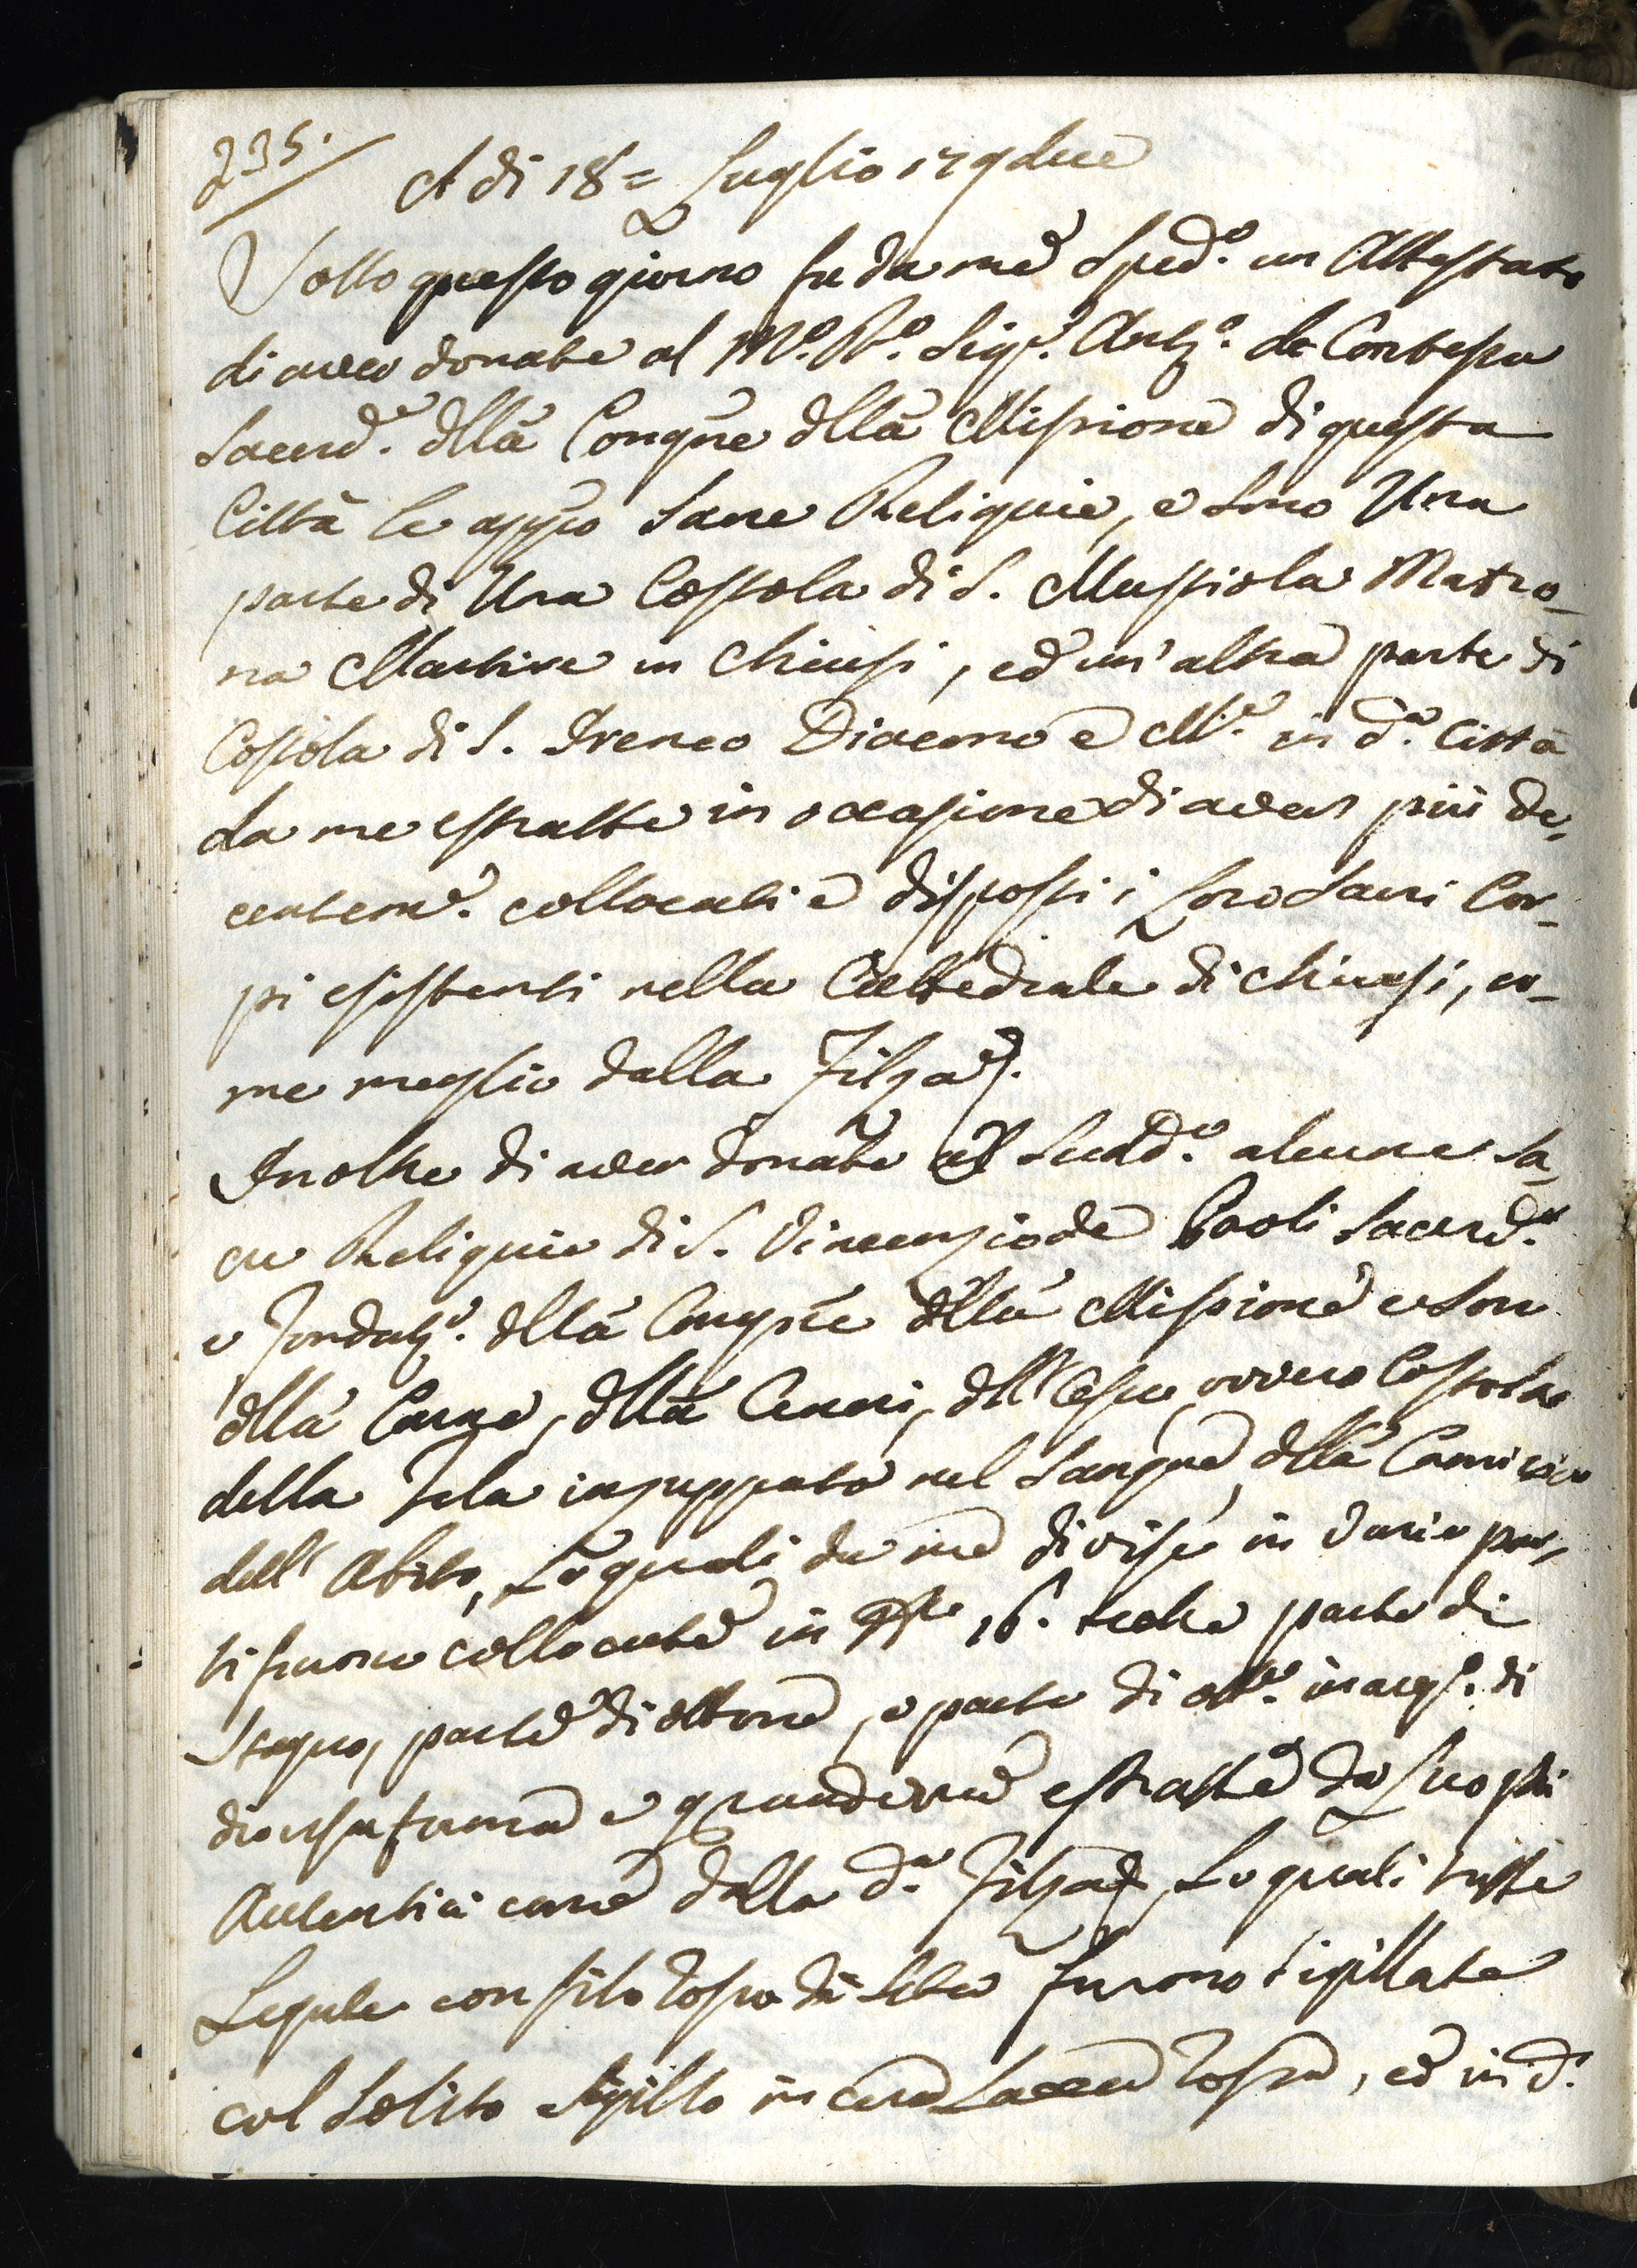 235.
A di 18= Luglio 179due
Sotto questo giorno fu da me Sped.º un Attestato
di aver donate al M.º R.º Sig.r Ant.º de Contessa
Sacerd.e dllā Congñe dllā Missione di questa
Città le appõ Sacre Reliquie, e sono Una
parte di Una Costola di S. Mustiola Matro-
na Martire in Chiusi, ed un' altra parte di
Costola di S. Ireneo Diacono e M.e in d.a Città
da me estratte in occasione di aver più de-
centem.e collocati e disposti i Loro Sacri Cor-
pi esistenti nella Cattedrale di Chiusi, co-
me meglio dalla Filza.
Inoltre di aver donate al Sudd.º alcune Sa-
cre Reliquie di S. Vincenzio de Paoli Sacerd.e
e Fondat.e dllā Congñe dllā Missione e sono
dllā Carne, dllē Ceneri, dll' Ossa, ovvero Costola
della Tela inzuppata nel Sangue, dllā Camicia
dell' Abito, Le quali da me divise in varie par-
ti furono collocate in 16. teche parte di
Stagno, parte di ottone, e parte di ott.e inarg.º di
diversa forma e grandezza estratte da Suo pti
Autentici come dalla d.a Filza, Le quali tutte
Legate con filo rosso di Seta furono Sigillate
col Solito Sigillo in cera Lacca rossa, ed in d.